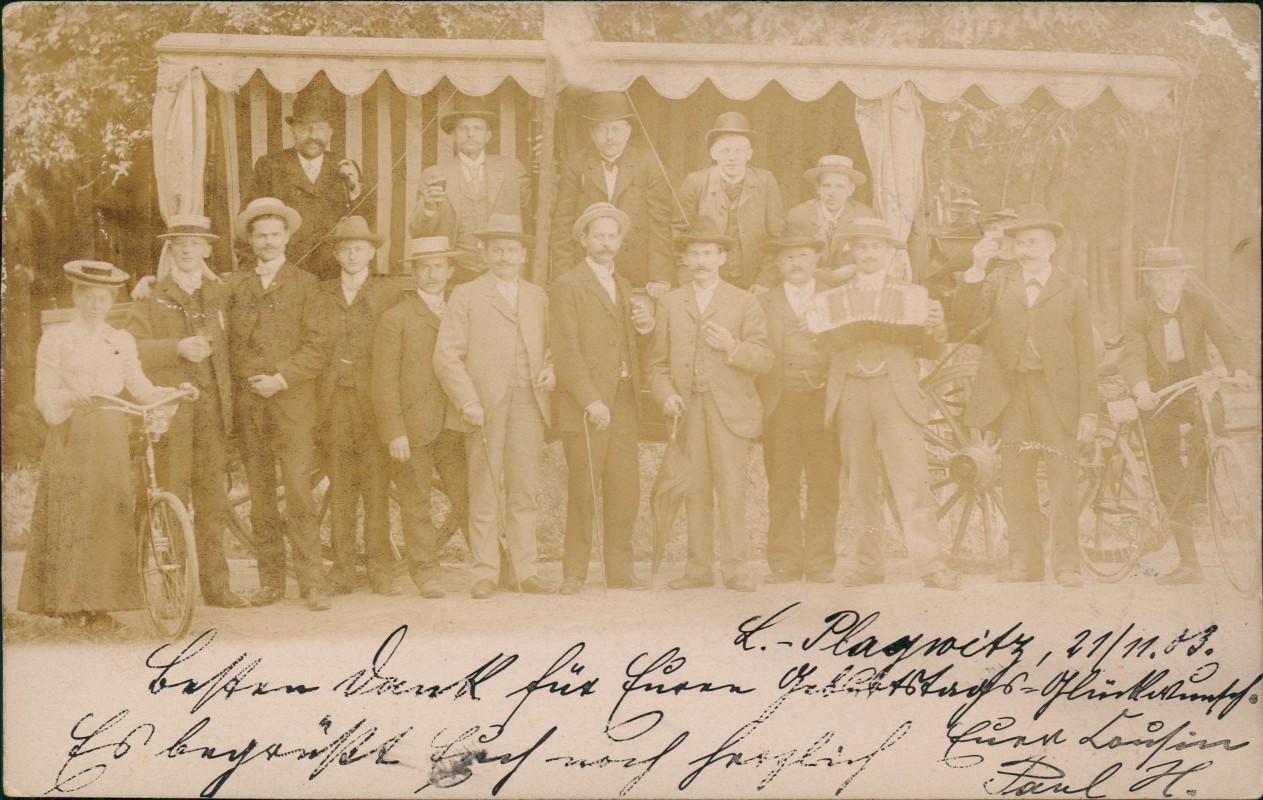 L.-Plagwitz, 21/11.03.
Besten Dank für Euren Geburtstags-Glückwunsch.
Es begrüßt Euch noch herzlich Euer Cousin
Paul H.